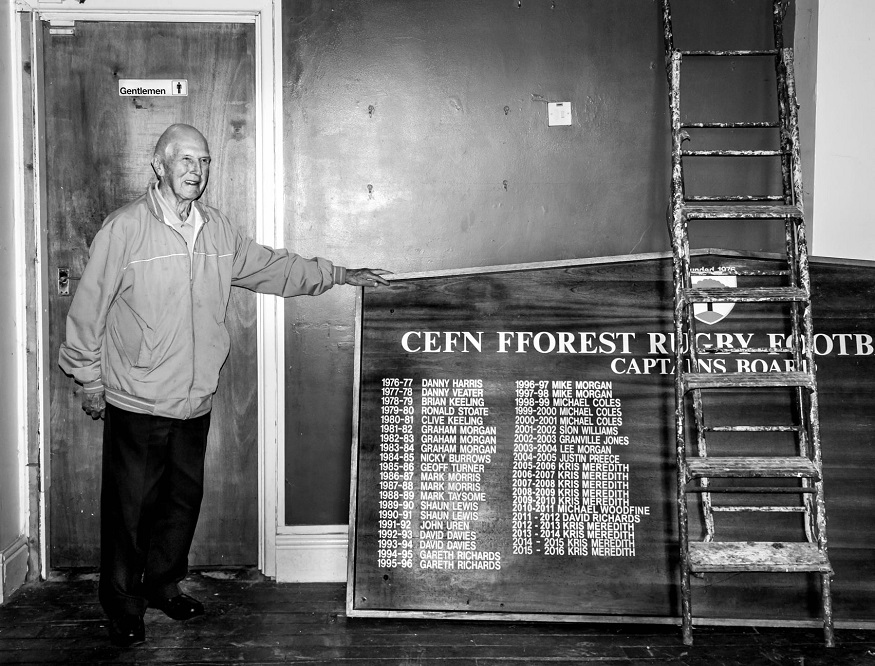 Gentlemen
Founded 1976
CEFN FFOREST RUGBY FOOTB
CAPTAINS BOARD
1976-77 DANNY HARRIS
1977-78 DANNY VEATER
1978-79 BRIAN KEELING
1979-80 RONALD STOATE
1980-81 CLIVE KEELING
1981-82 GRAHAM MORGAN
1982-83 GRAHAM MORGAN
1983-84 GRAHAM MORGAN
1984-85 NICKY BURROWS
1985-86 GEOFF TURNER
1986-87 MARK MORRIS
1987-88 MARK MORRIS
1988-89 MARK TAYSOME
1989-90 SHAUN LEWIS
1990-91 SHAUN LEWIS
1991-92 JOHN UREN
1992-93 DAVID DAVIES
1993-94 DAVID DAVIES
1994-95 GARETH RICHARDS
1995-96 GARETH RICHARDS
1996-97 MIKE MORGAN
1997-98 MIKE MORGAN
1998-99 MICHAEL COLES
1999-2000 MICHAEL COLES
2000-2001 MICHAEL COLES
2001-2002 SION WILLIAMS
2002-2003 GRANVILLE JONES
2003-2004 LEE MORGAN
2004-2005 JUSTIN PREECE
2005-2006 KRIS MEREDITH
2006-2007 KRIS MEREDITH
2007-2008 KRIS MEREDITH
2008-2009 KRIS MEREDITH
2009-2010 KRIS MEREDITH
2010-2011 MICHAEL WOODFINE
2011-2012 DAVID RICHARDS
2012-2013 KRIS MEREDITH
2013 - 2014 KRIS MEREDITH
2014 - 2015 KRIS MEREDITH
2015 - 2016 KRIS MEREDITH